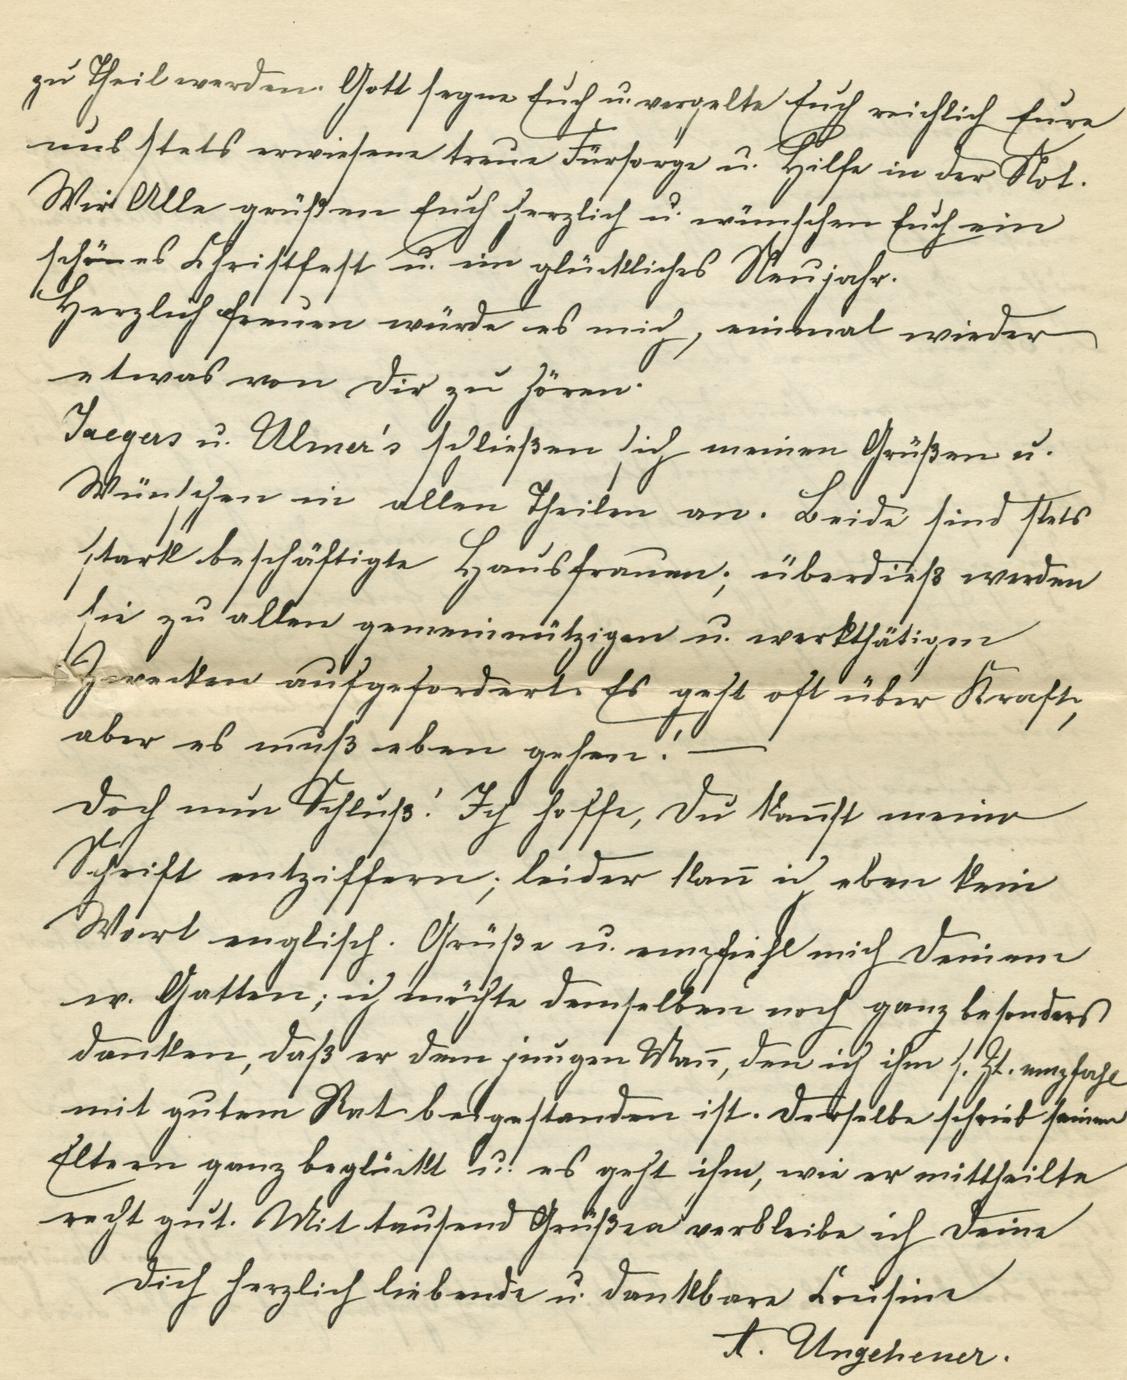 zu Theil werden. Gott segne Euch u. vergelte Euch reichlich Eure
uns stets erwiesene treue Fürsorge u. Hilfe in der Not.
Wir Alle grüßen Euch herzlich u. wünschen Euch ein
schönes Christfest u. ein glückliches Neujahr.
Herzlich freuen würde es mich, einmal wieder
etwas von Dir zu hören.
Jaegers u. Ulmer's schließen sich meinen Grüßen u.
Wünschen in allen Theilen an. Beide sind stets
stark beschäftigte Hausfrauen; überdieß werden
sie zu allen gemeinnützigen u. werkthätigen
Zwecken aufgefordert. Es geht oft über Kraft,
aber es muß eben gehen! —
Doch nun Schluß! Ich hoffe, Du kan̄st meine
Schrift entziffern; leider kan̄ ich eben kein
Wort englisch. Grüße u. empfiehl mich Deinem
w. Gatten; ich möchte demselben noch ganz besonders
danken, daß er dem jungen Man̄, den ich ihm s. Zt. empfahl
mit gutem Rat beigestanden ist. Derselbe schrieb seinen
Eltern ganz beglückt u. es geht ihm, wie er mittheilte
recht gut. Mit tausend Grüßen verbleibe ich Deine
Dich herzlich liebende u. dankbare Cousine
A. Ungeheuer.